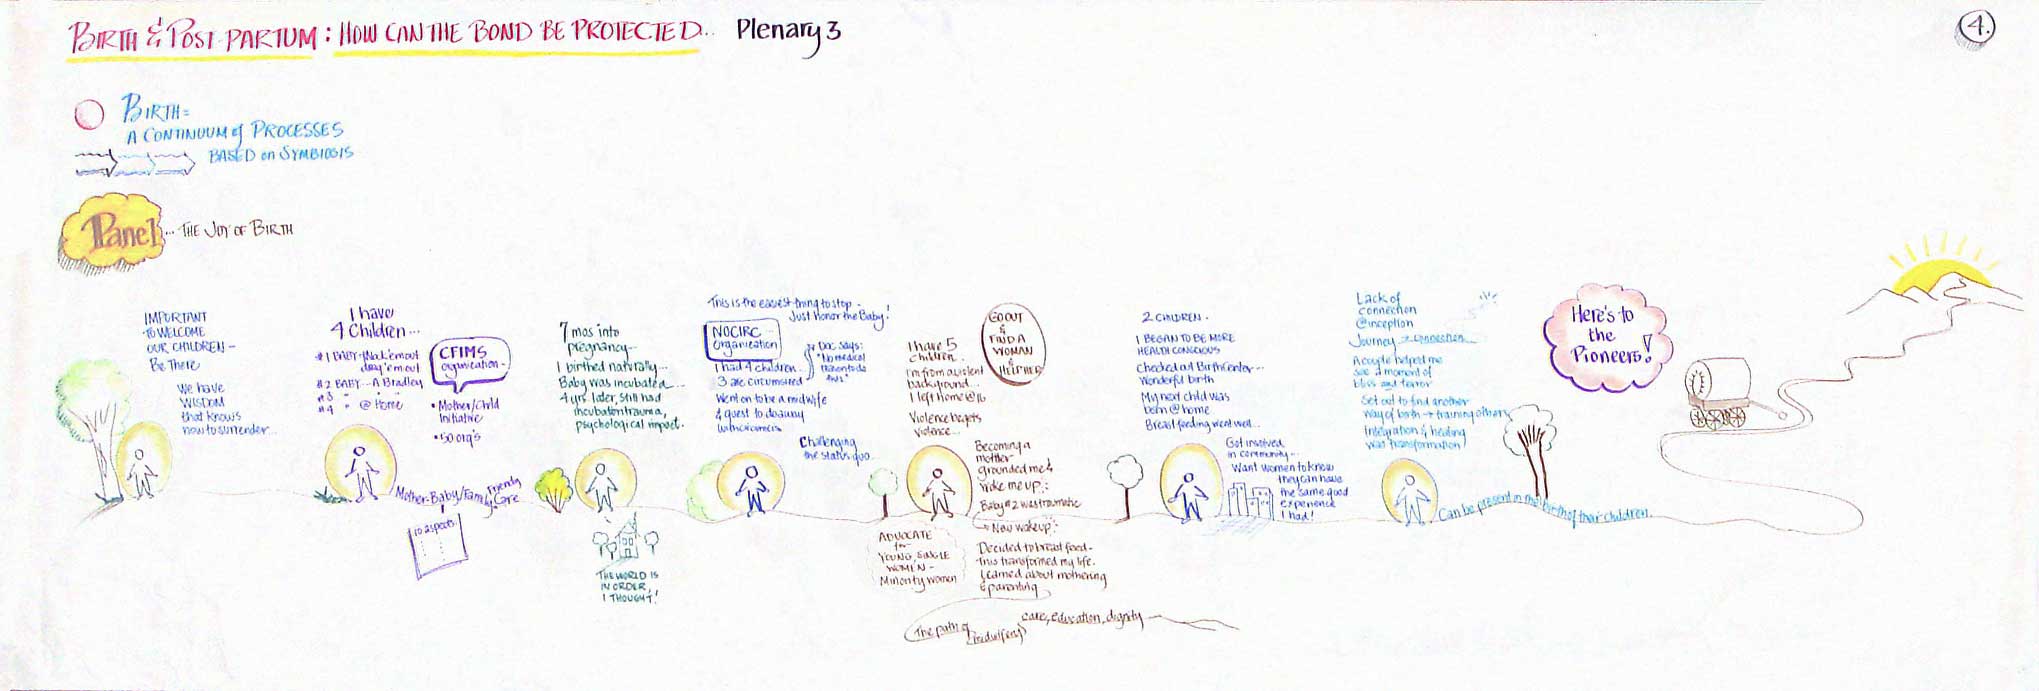 BIRTH & POST-PARTUM: HOW CAN THE BOND BE PROTECTED.. Plenary 3
4.
BIRTH =
A CONTINUUM of PROCESSES
BASED on SYMBIOSIS
Panel... THE JOY OF BIRTH
IMPORTANT
TO WELCOME
OUR CHILDREN -
Be There
We have
WISDOM
that knows
how to surrender...
I have
4 Children...
#1 BABY - Knock 'em out
drag 'em out
#2 BABY - A Bradley
#3 " "
#4 " @ Home
CFIMS
organization -
• Mother/Child
Initiative
• 50 org's
Mother-Baby/Family Friendly Care
10 aspects
7 mos into
pregnancy...
I birthed naturally...
Baby was incubated...
4 yrs. later, still had
incubation trauma,
psychological impact.
THE WORLD IS
IN ORDER,
I THOUGHT!
This is the easiest thing to stop -
Just Honor the Baby!
NOCIRC -
Organization
I had 4 children...
3 are circumcised
Doc says:
"No medical
reason to do
this"
Went on to be a midwife
& quest to do away
w/ circumcis
Challenging
the status quo
I have 5
children...
I'm from a violent
background...
I left home @ 16
Violence begets
violence...
GO OUT
&
FIND A
WOMAN
&
HELP HER
Becoming a
mother
grounded me &
woke me up:
Baby #2 was traumatic
Now wake up:
Decided to breast feed -
This transformed my life.
Learned about mothering
& parenting
ADVOCATE
for
YOUNG, SINGLE
WOMEN -
Minority women
The path of midwifery care, education, dignity
2 CHILDREN.
I BEGAN TO BE MORE
HEALTH CONSCIOUS
Checked out Birth Center...
Wonderful birth
My next child was
born @ home
Breast feeding went well...
Got involved
in community...
Want women to know
they can have
the same good
experience
I had!
Lack of
connection
@ inception
Journey → connection
A couple helped me
see a moment of
bliss and terror
Set out to find another
way of birth → training others
Integration & healing
was transformation!
Can be present in the birth of their children.
Here's to
the
Pioneers!